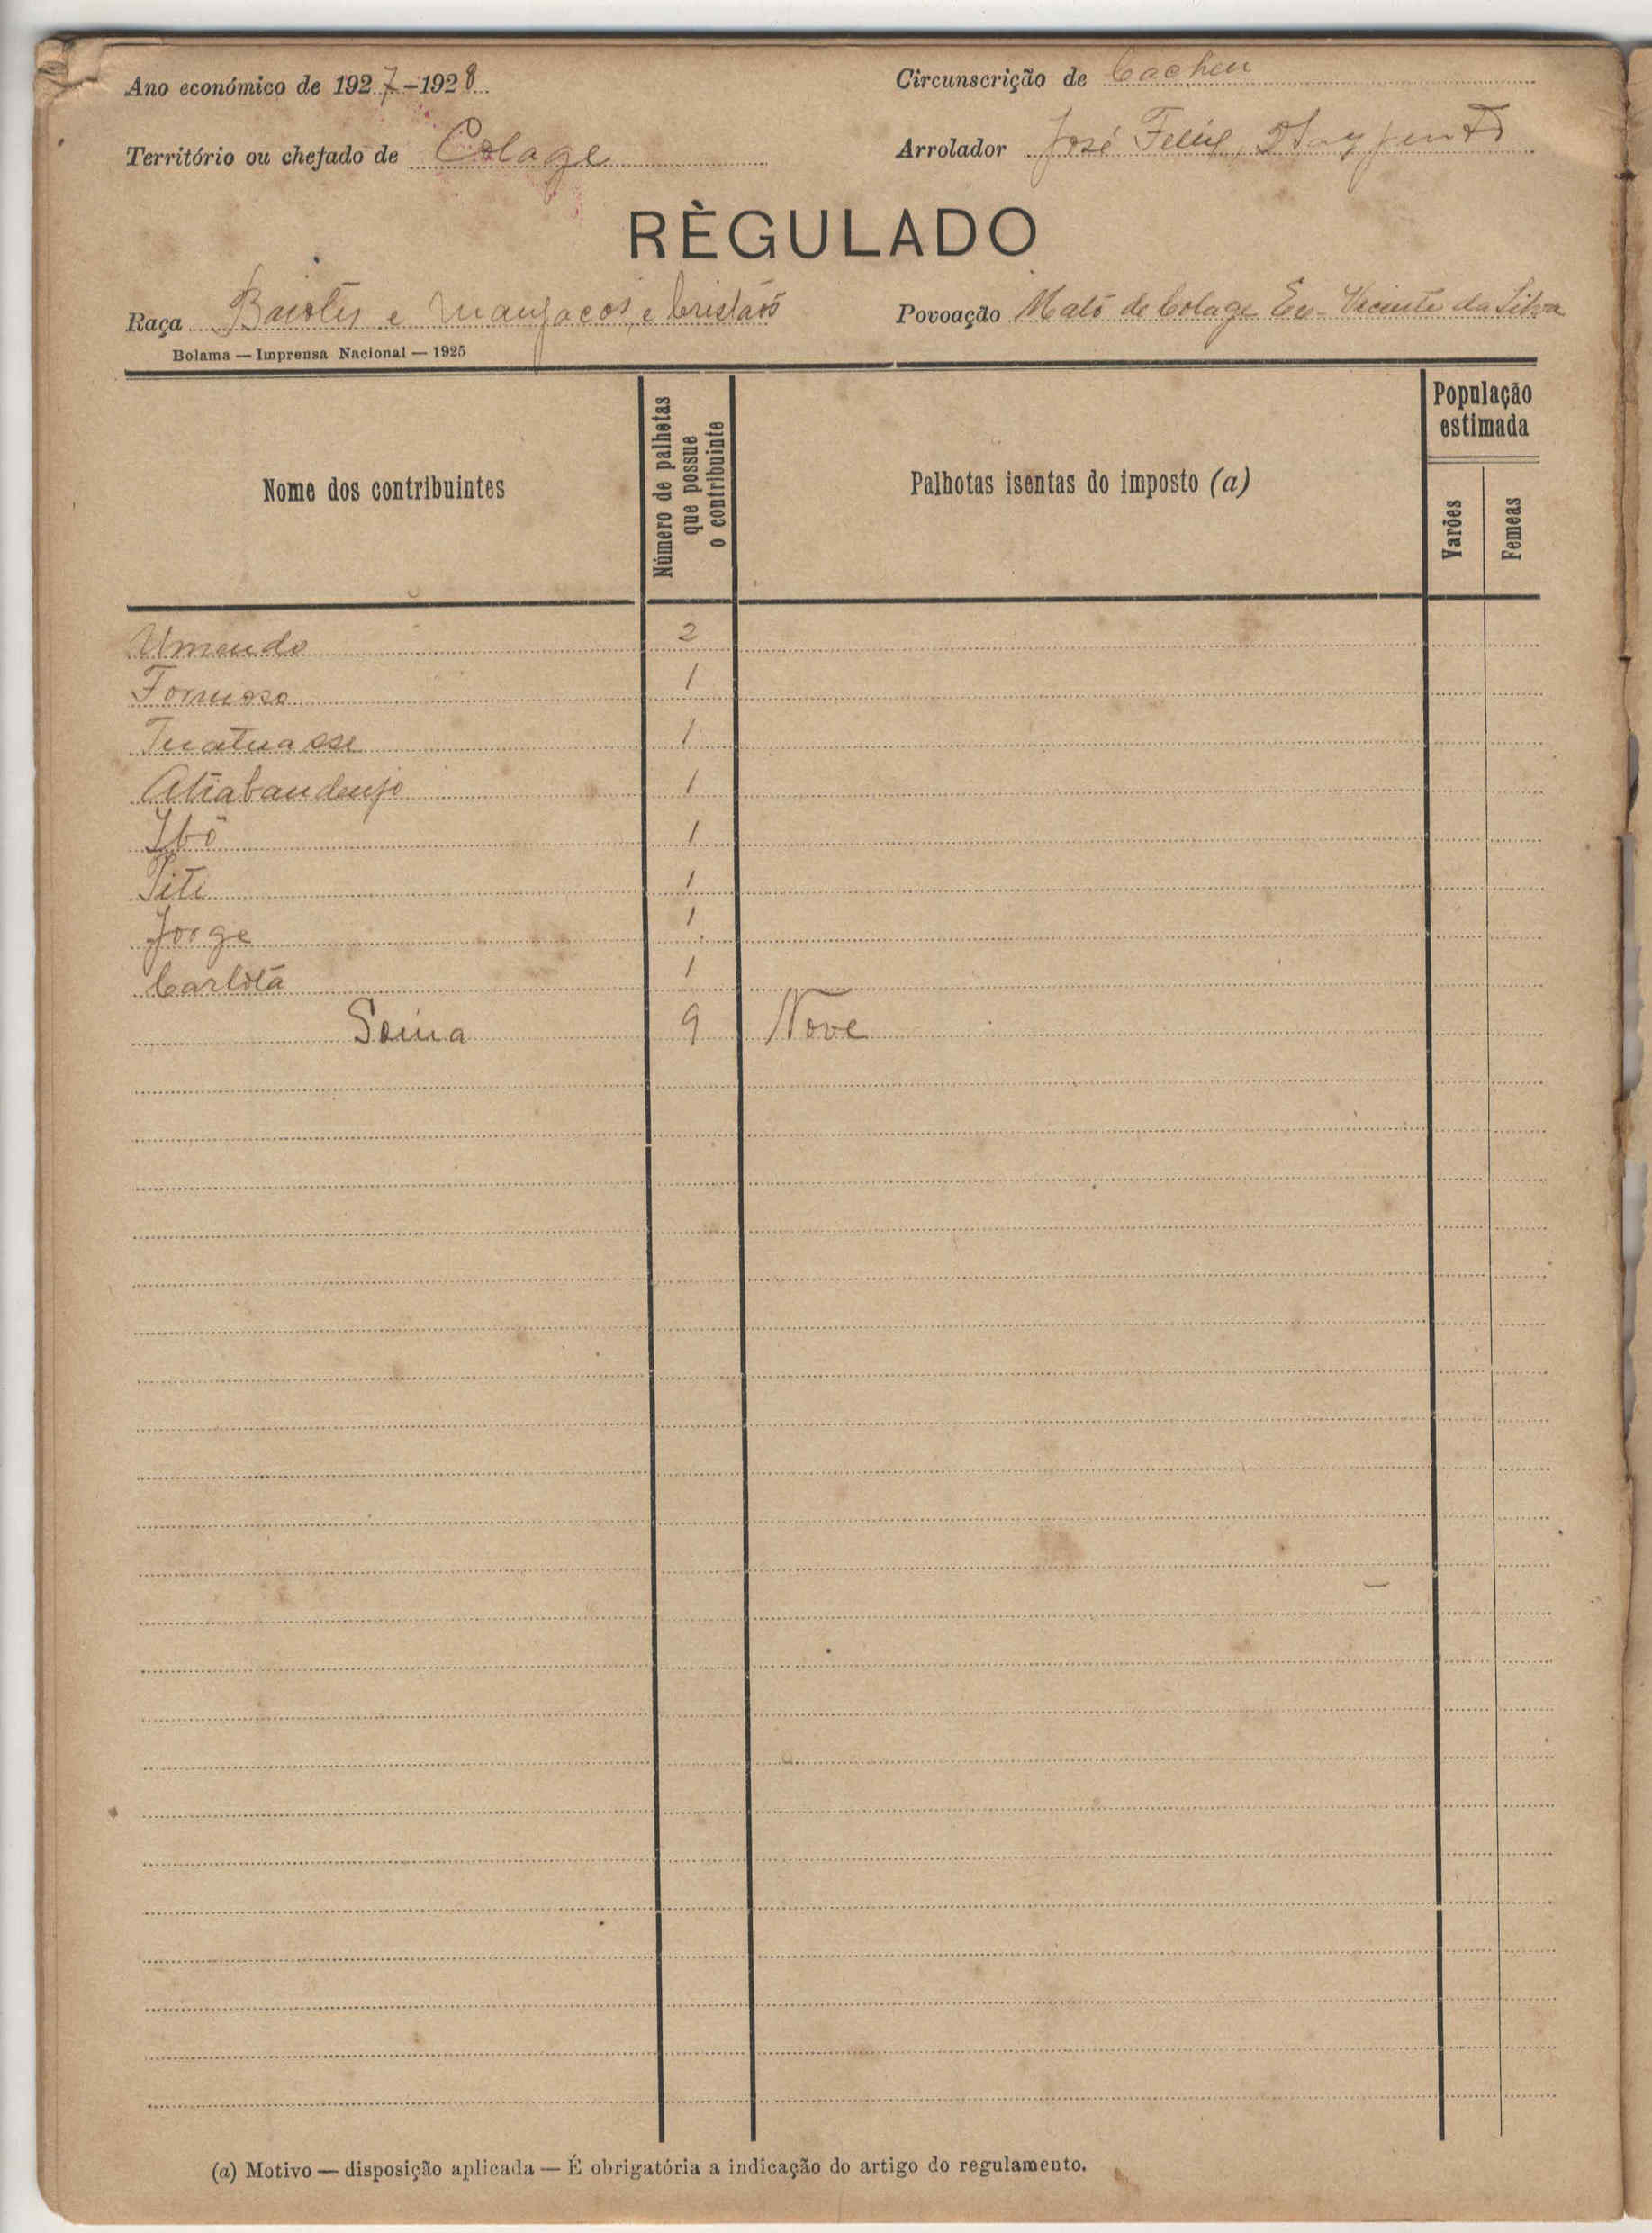 Ano económico de 1927-1928
Circunscrição de Cacheu
Território ou chefado de Colage
Arrolador José Felix
RÈGULADO
Raça Baiotes e Manjacos, e Cristãos
Povoação Mato de Colage Vicente da Silva
Bolama — Imprensa Nacional — 1925
Nome dos contribuintes
Número de palhotas que possue o contribuinte
Palhotas isentas do imposto (a)
População estimada
Varões
Femeas
Umendo 2
Formoso 1
1
Atiabandenjo 1
Ibó 1
Piti 1
Jorge 1
Carlota 1
Soma 9 Nove
(a) Motivo — disposição aplicada — É obrigatória a indicação do artigo do regulamento.